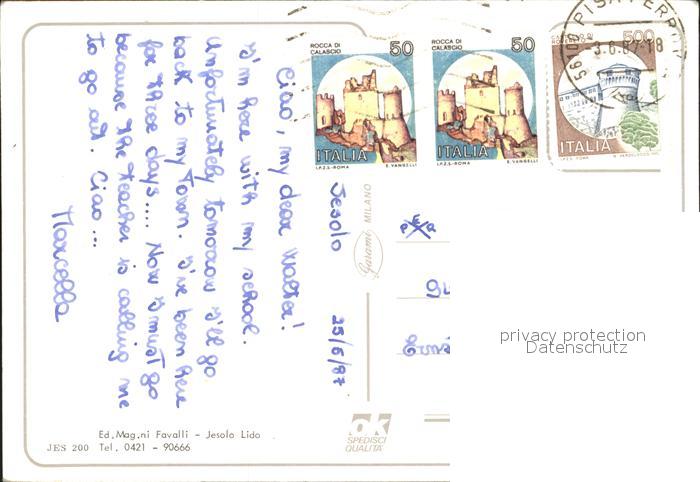 ROCCA DI
CALASCIO
50
ITALIA
I.P.Z.S.-ROMA E. VANGELLI
ROCCA DI
CALASCIO
50
ITALIA
I.P.Z.S.-ROMA E. VANGELLI
500
ITALIA
I.P.Z.S. ROMA
56100 PISA FERR
Jesolo 25/6/87
Ciao, my dear Walter!
I'm here with my school.
Unfortunately tomorrow I'll go
back to my Town. I've been here
for three days..... Now I must go
because the teacher is calling me
to go out. Ciao...
Marcella
PER
Garami MILANO
privacy protection
Datenschutz
ok
SPEDISCI
QUALITA'
Ed. Mag.ni Favalli - Jesolo Lido
JES 200 Tel. 0421 - 90666